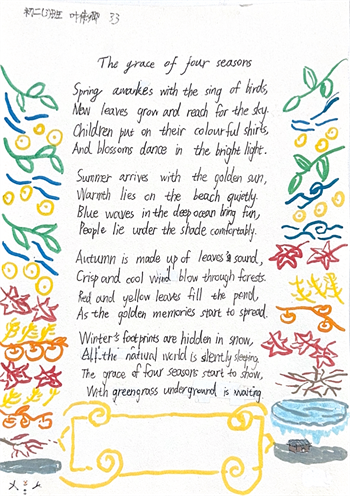 初二(2)班 叶 卿 33
The grace of four seasons
Spring awakes with the sing of birds,
New leaves grow and reach for the sky.
Children put on their colourful shirts,
And blossoms dance in the bright light.
Summer arrives with the golden sun,
Warmth lies on the beach quietly.
Blue waves in the deep ocean bring fun,
People lie under the shade comfortably.
Autumn is made up of leaves's sound,
Crisp and cool wind blow through forests.
Red and yellow leaves fill the pond,
As the golden memories start to spread.
Winter's footprints are hidden in snow,
All the natural world is silently sleeping.
The grace of four seasons start to show,
With greengrass underground is waiting.